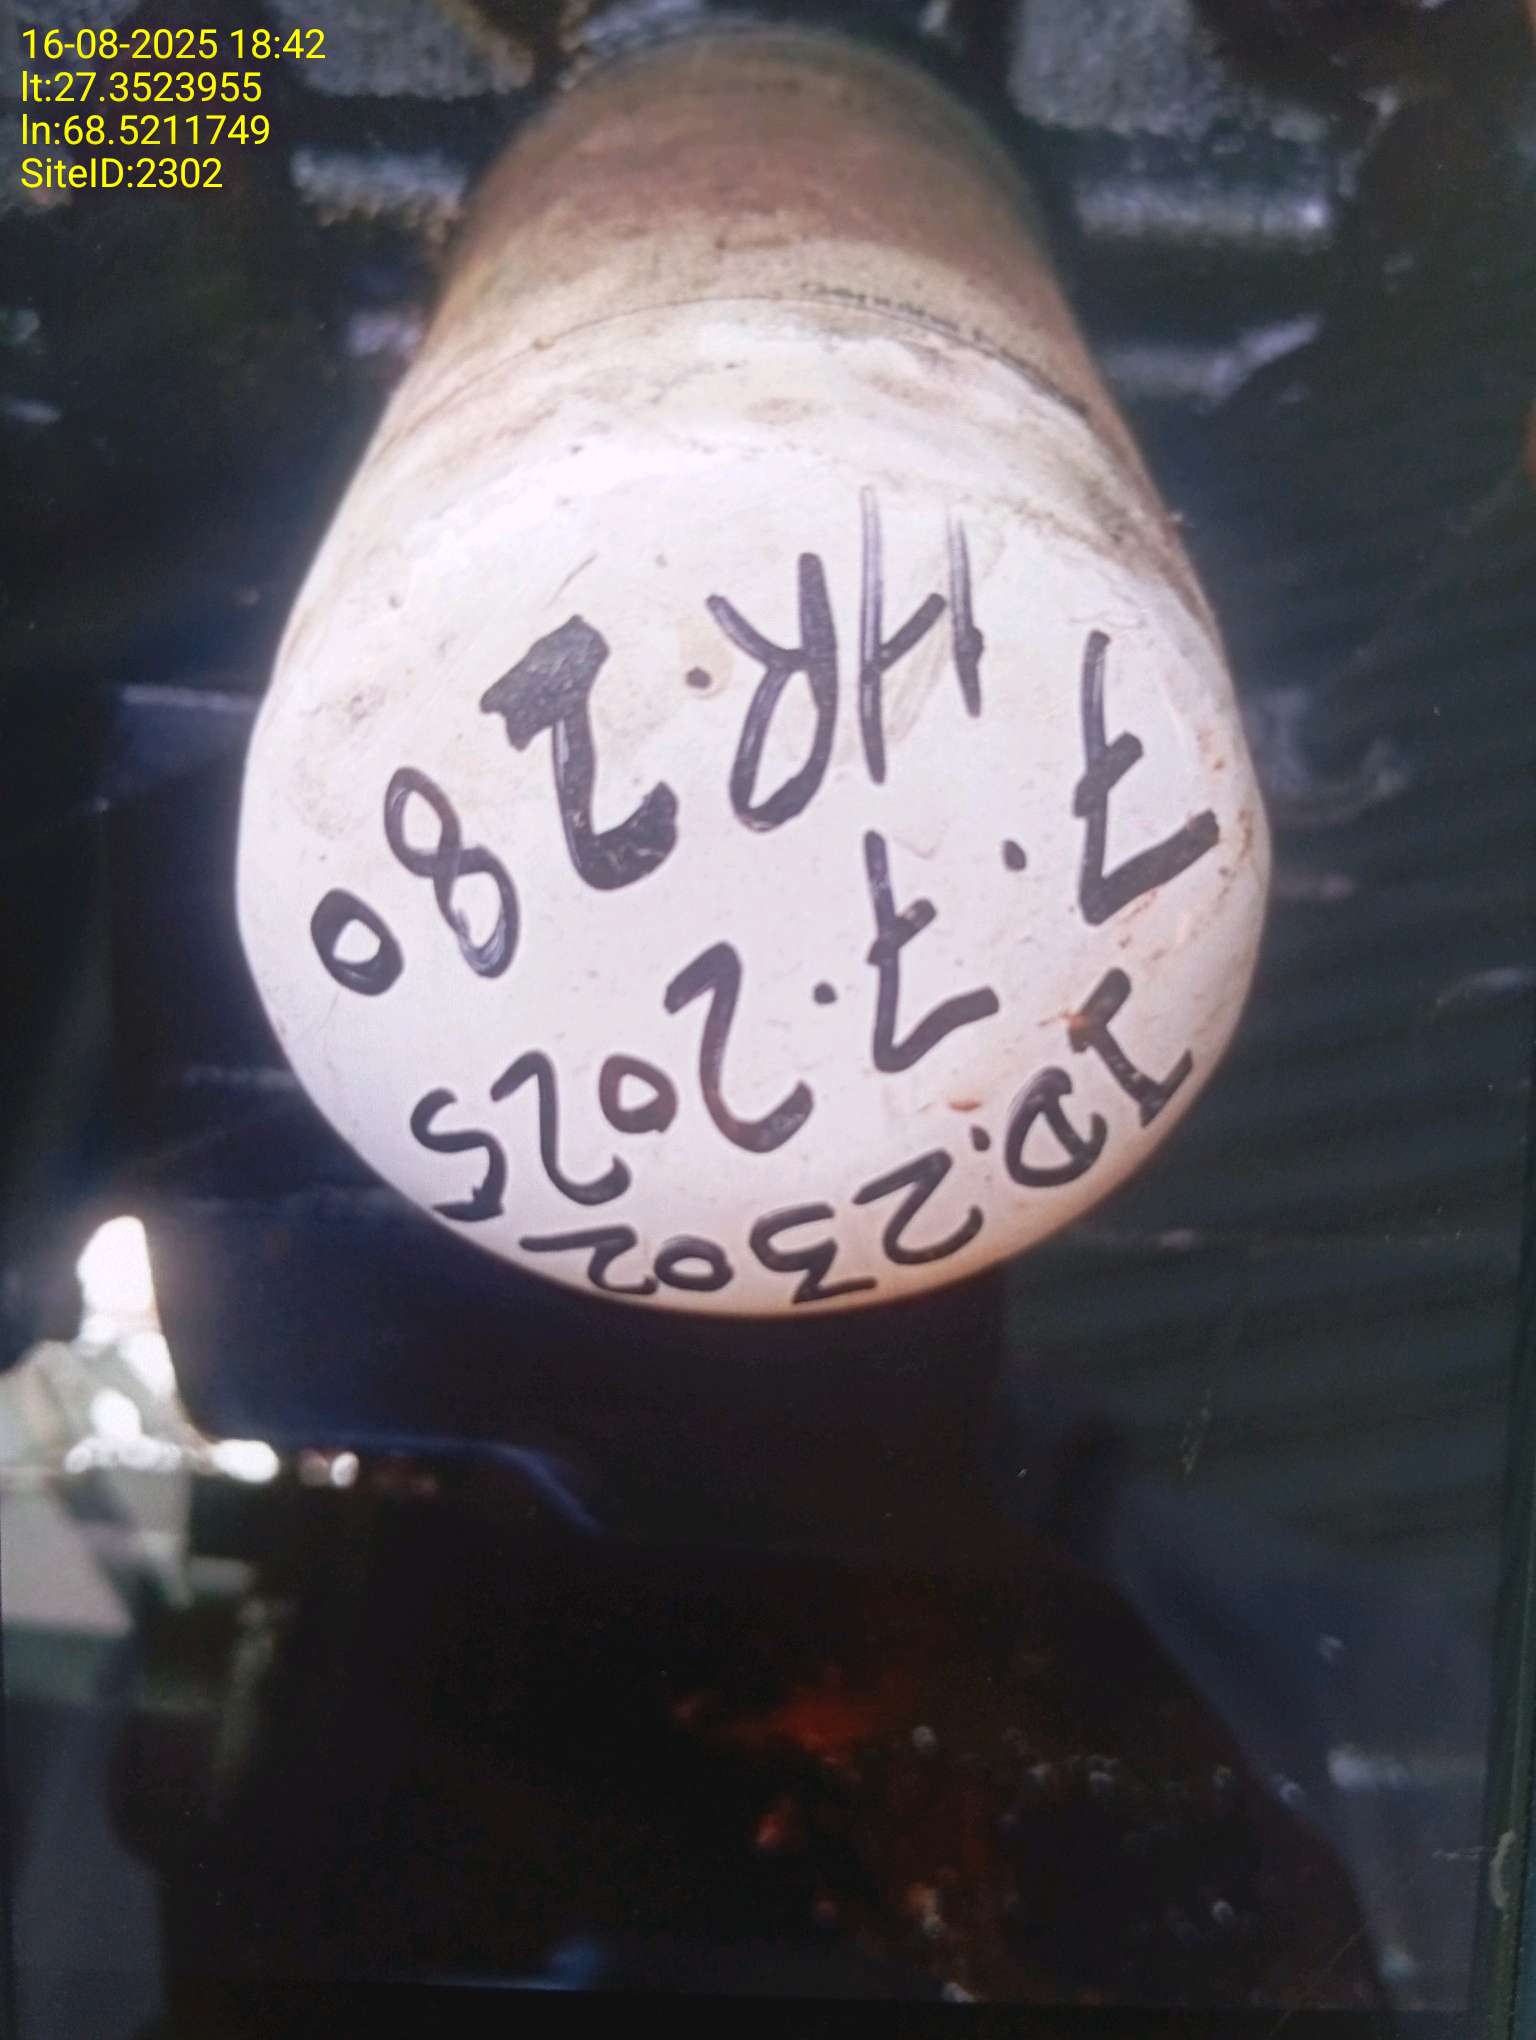 16-08-2025 18:42
lt:27.3523955
ln:68.5211749
SiteID:2302
ID.2302
7.7.2025
HR.280